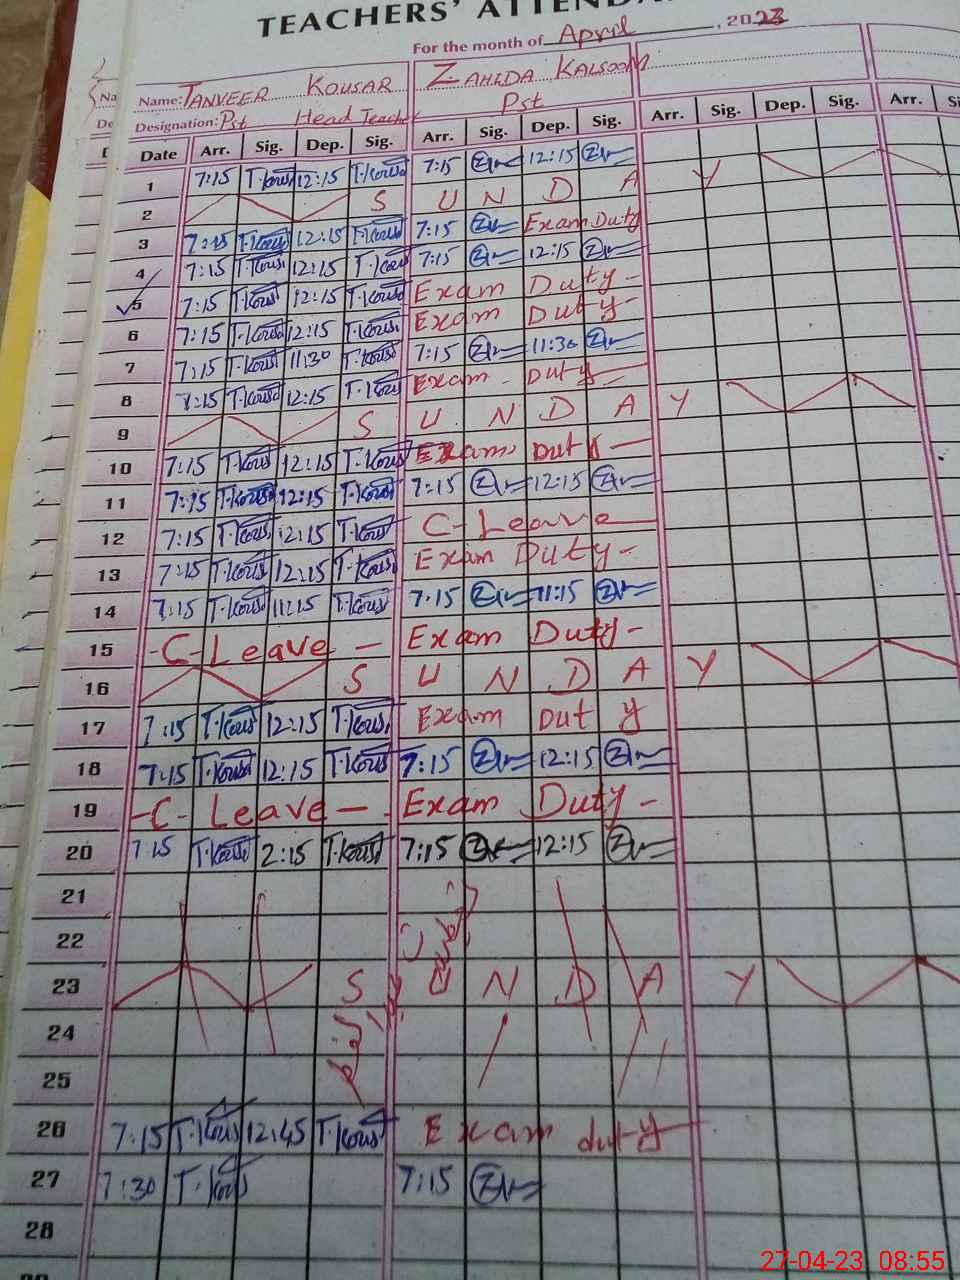 TEACHERS' ATTENDA
For the month of April, 2023
Name: TANVEER KOUSAR ZAHIDA KALSOOM
Designation: Pst Head Teacher Pst
Date Arr. Sig. Dep. Sig. Arr. Sig. Dep. Sig. Arr. Sig. Dep. Sig. Arr.
1 7:15 T.Kous 12:15 T.Kous 7:15 12:15
2 S U N D A Y
3 7:15 T.Kous 12:15 T.Kous 7:15 Exam Duty
4 7:15 T.Kous 12:15 T.Kous 7:15 12:15
5 7:15 T.Kous 12:15 T.Kous Exam Duty -
6 7:15 T.Kous 12:15 T.Kous Exam Duty -
7 7:15 T.Kous 11:30 T.Kous 7:15 11:30
8 7:15 T.Kous 12:15 T.Kous Exam - Duty
9 S U N D A Y
10 7:15 T.Kous 12:15 T.Kous Exam Duty -
11 7:15 T.Kous 12:15 T.Kous 7:15 12:15
12 7:15 T.Kous 12:15 T.Kous C-Leave
13 7:15 T.Kous 12:15 T.Kous Exam Duty -
14 7:15 T.Kous 11:15 T.Kous 7:15 11:15
15 -C-Leave - Exam Duty -
16 S U N D A Y
17 7:15 T.Kous 12:15 T.Kous Exam Duty
18 7:15 T.Kous 12:15 T.Kous 7:15 12:15
19 -C- Leave - Exam Duty -
20 7:15 T.Kous 2:15 T.Kous 7:15 12:15
21
22
23 S U N D A Y
24
25
26 7:15 T.Kous 12:45 T.Kous Exam duty
27 7:30 T.Kous 7:15
28
27-04-23 08:55